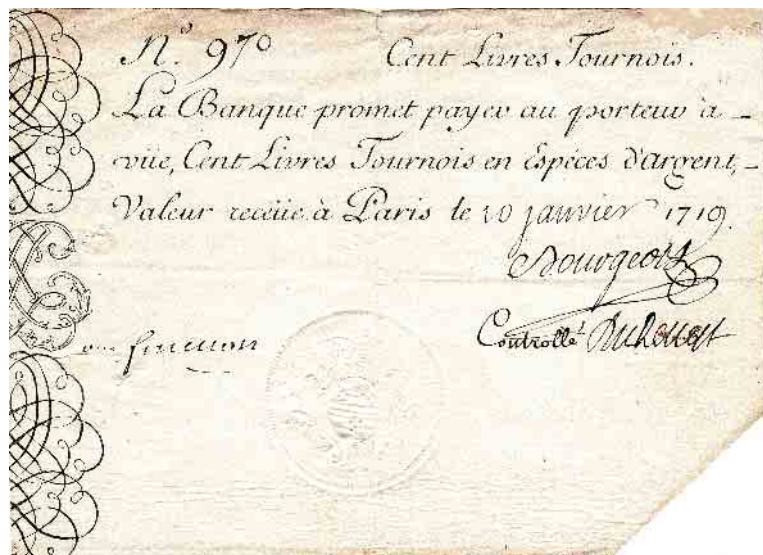 N.º 970 Cent Livres Tournois.
La Banque promet payer au porteur à
vüe, Cent Livres Tournois en Espéces d'argent,
Valeur receüe à Paris le 10 janvier 1719.
Bourgeois
Controllé